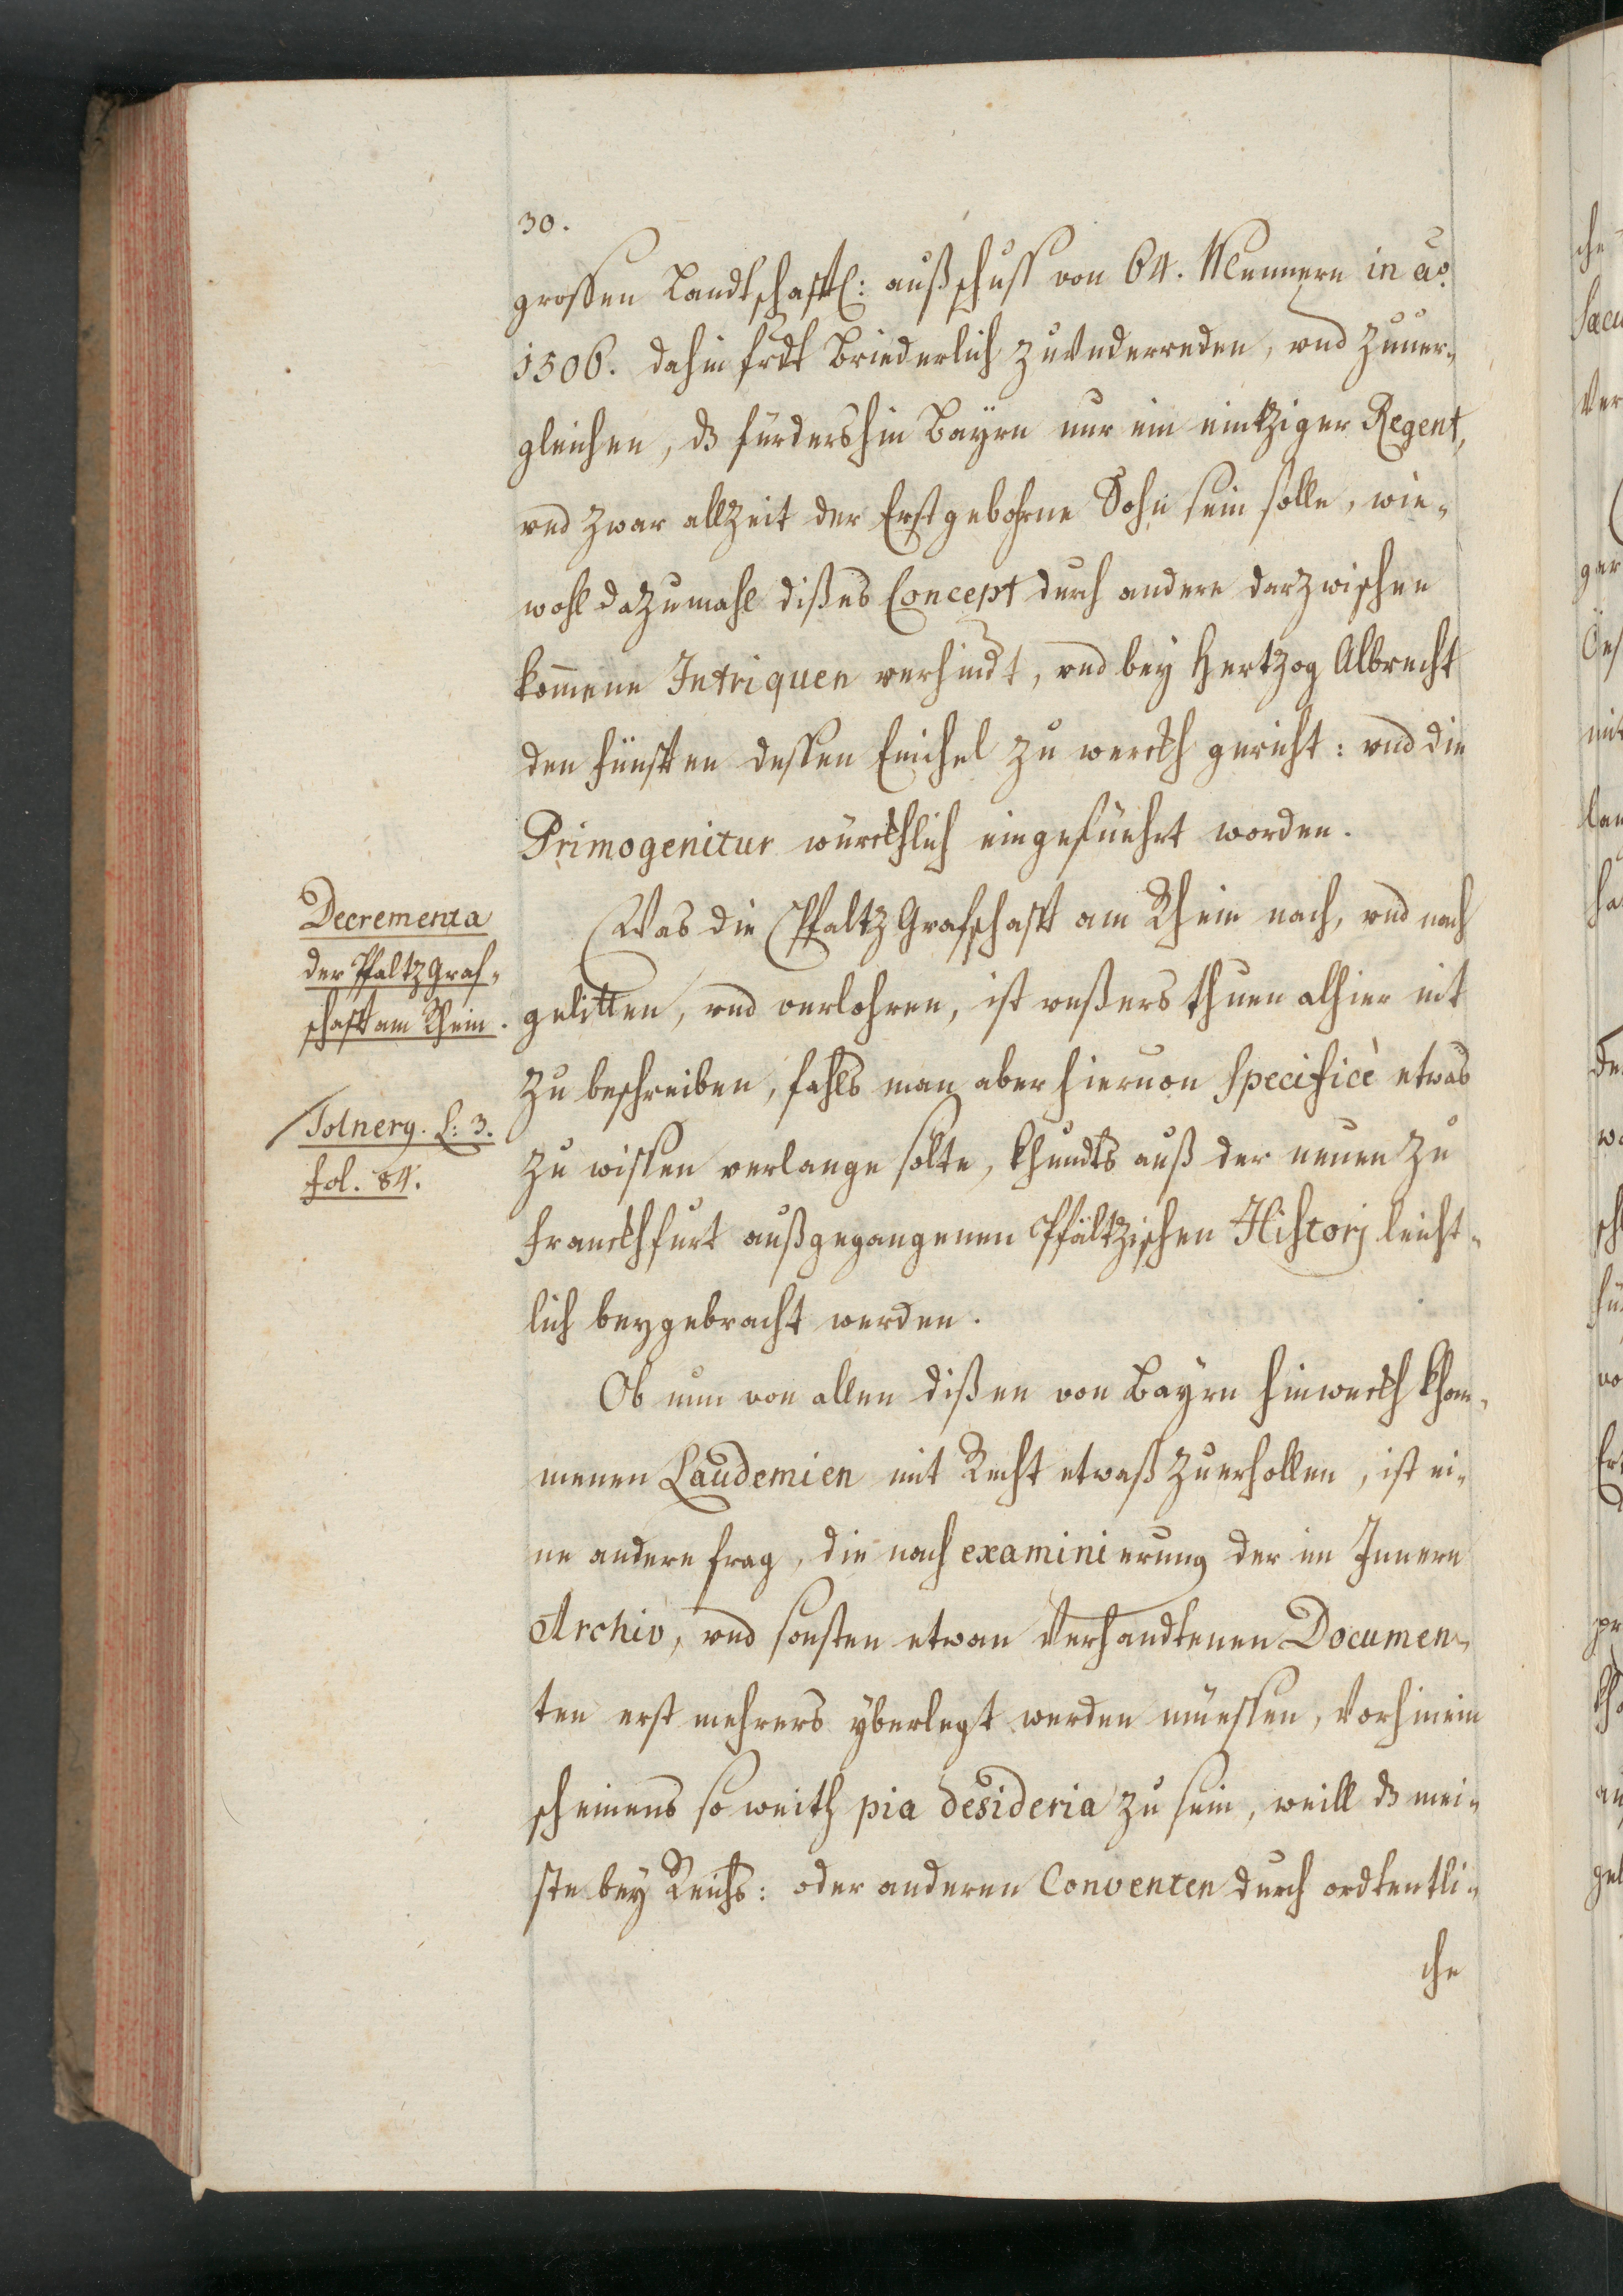 30.
grossen Landtschafftl: außschuss von 64. Mennern in ao.
1506. dahin frdl Briederlich zuunderreden, vnd zuuer¬
gleichen, dz fürdershin Bayrn nur ein eintziger Regent,
vnd zwar allzeit der Erstgebohrne Sohn sein solle, wie¬
wohl dazumahl dißes Concept durch andere darzwischen
komene Intriquen verhindt, vnd bey Hertzog Albrecht
den fünfften dessen Enichel zu werckh gericht: vnd die
Primogenitur würckhlich eingeführt worden.
Decrementa
der Pfaltzgraf¬
schafft am Rhein.
Was die Pfaltz Grafschafft am Rhein nach, vnd nach
gelitten, vnd verlohren, ist vnßers thuen alhier nit
zu beschreiben, fahls man aber hieruon specificè etwas
Tolnerg. L: 3.
fol. 84.
zu wissen verlange solte, khundts auß der neuen zu
Franckhfurt außgegangenen Pfältzischen Historj leicht¬
lich beygebracht werden.
Ob nun von allen dißen von Bayrn hinweckh khom¬
menen Laudemien mit Recht etwaß zuerhollen, ist ei¬
ne andere frag, die nach examinierung der im Innern
Archiv, vnd sonsten etwan Verhandtenen Documen¬
ten erst mehrers yberlegt werden müessen, Vorhinein
scheinens so weith pia desideria zu sein, weill dz mei¬
ste bey Reichs: oder anderen Conventen durch ordtentli¬
che